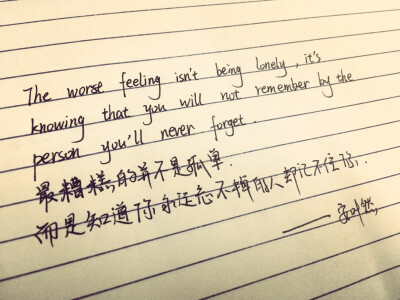 The worse feeling isn't being lonely, it's
knowing that you will not remember by the
person you'll never forget.
最糟糕的并不是孤单.
而是知道你永远忘不掉的人却记不住你.